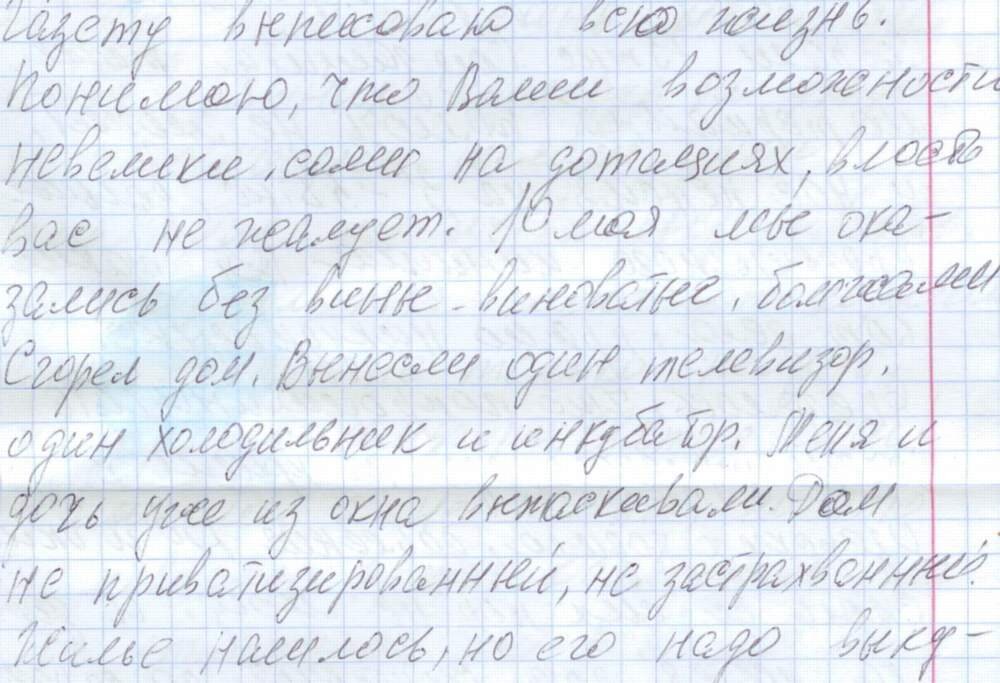 Газету выписываю всю жизнь.
Понимаю, что Ваши возможности
невелики, сами на дотациях, власть
вас не жалует. 10 мая мы ока-
зались без вины-виноватые,
Сгорел дом. Вынесли один телевизор,
один холодильник и инкубатор. Меня и
дочь уже из окна вытаскивали. Дом
не приватизированный, не застрахованный.
Жилье нашлось, но его надо выку-